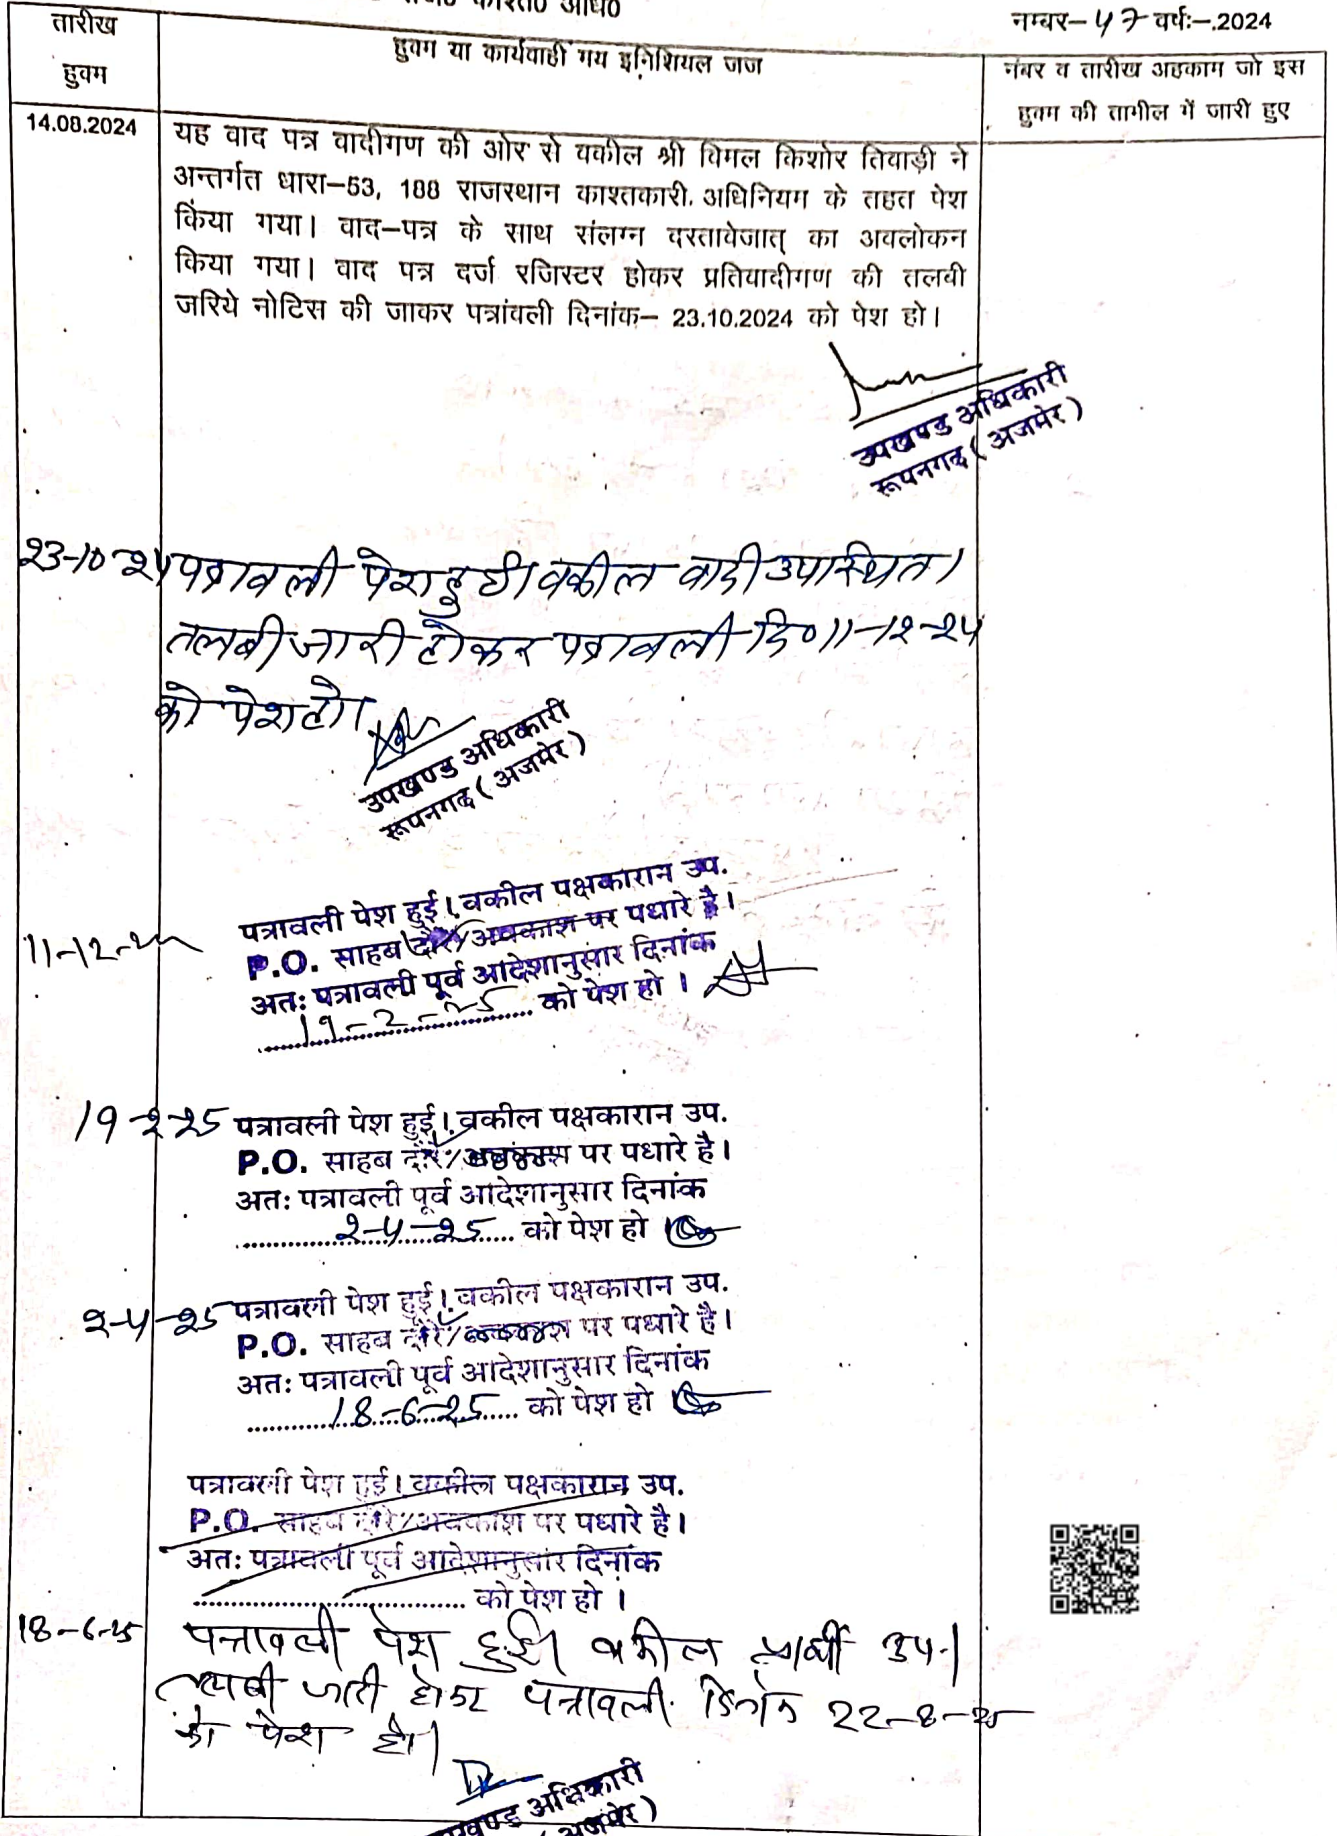 नम्बर–47 वर्षः–.2024
तारीख
हुक्म
हुक्म या कार्यवाही मय इनिशियल जज
नंबर व तारीख अहकाम जो इस
हुक्म की तामील में जारी हुए
14.08.2024
यह वाद पत्र वादीगण की ओर से वकील श्री विमल किशोर तिवाड़ी ने
अन्तर्गत धारा–53, 188 राजस्थान काश्तकारी. अधिनियम के तहत पेश
किया गया। वाद–पत्र के साथ संलग्न दस्तावेजात् का अवलोकन
किया गया। वाद पत्र दर्ज रजिस्टर होकर प्रतिवादीगण की तलबी
जरिये नोटिस की जाकर पत्रांवली दिनांक– 23.10.2024 को पेश हो।
उपखण्ड अधिकारी
रूपनगढ़ (अजमेर)
23-10-24 पत्रावली पेश हुई। वकील वादी उपस्थित।
तलबी जारी होकर पत्रावली दि० 11-12-24
को पेश हो।
उपखण्ड अधिकारी
रूपनगढ़ (अजमेर)
पत्रावली पेश हुई। वकील पक्षकारान उप.
11-12-24 P.O. साहब दौरे/अवकाश पर पधारे है।
अतः पत्रावली पूर्व आदेशानुसार दिनांक
19-2-25 को पेश हो ।
19-2-25 पत्रावली पेश हुई। वकील पक्षकारान उप.
P.O. साहब दौरे/अवकाश पर पधारे है।
अतः पत्रावली पूर्व आदेशानुसार दिनांक
2-4-25 को पेश हो
2-4-25 पत्रावली पेश हुई। वकील पक्षकारान उप.
P.O. साहब दौरे/अवकाश पर पधारे है।
अतः पत्रावली पूर्व आदेशानुसार दिनांक
18-6-25 को पेश हो
पत्रावली पेश हुई। वकील पक्षकारान उप.
P.O. साहब दौरे/अवकाश पर पधारे है।
अतः पत्रावली पूर्व आदेशानुसार दिनांक
को पेश हो ।
18-6-25 पत्रावली पेश हुई। वकील प्रार्थी उप.।
तलबी जारी होकर पत्रावली दिनांक 22-8-25
को पेश हो।
अधिकारी
(अजमेर)